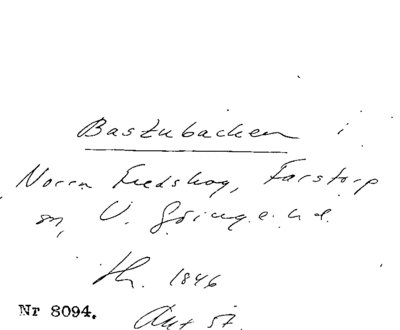 Bastubacken i
Norra Fredskog, Farstorp
sn, V. Göinge hd.
1846
Nr 8094.